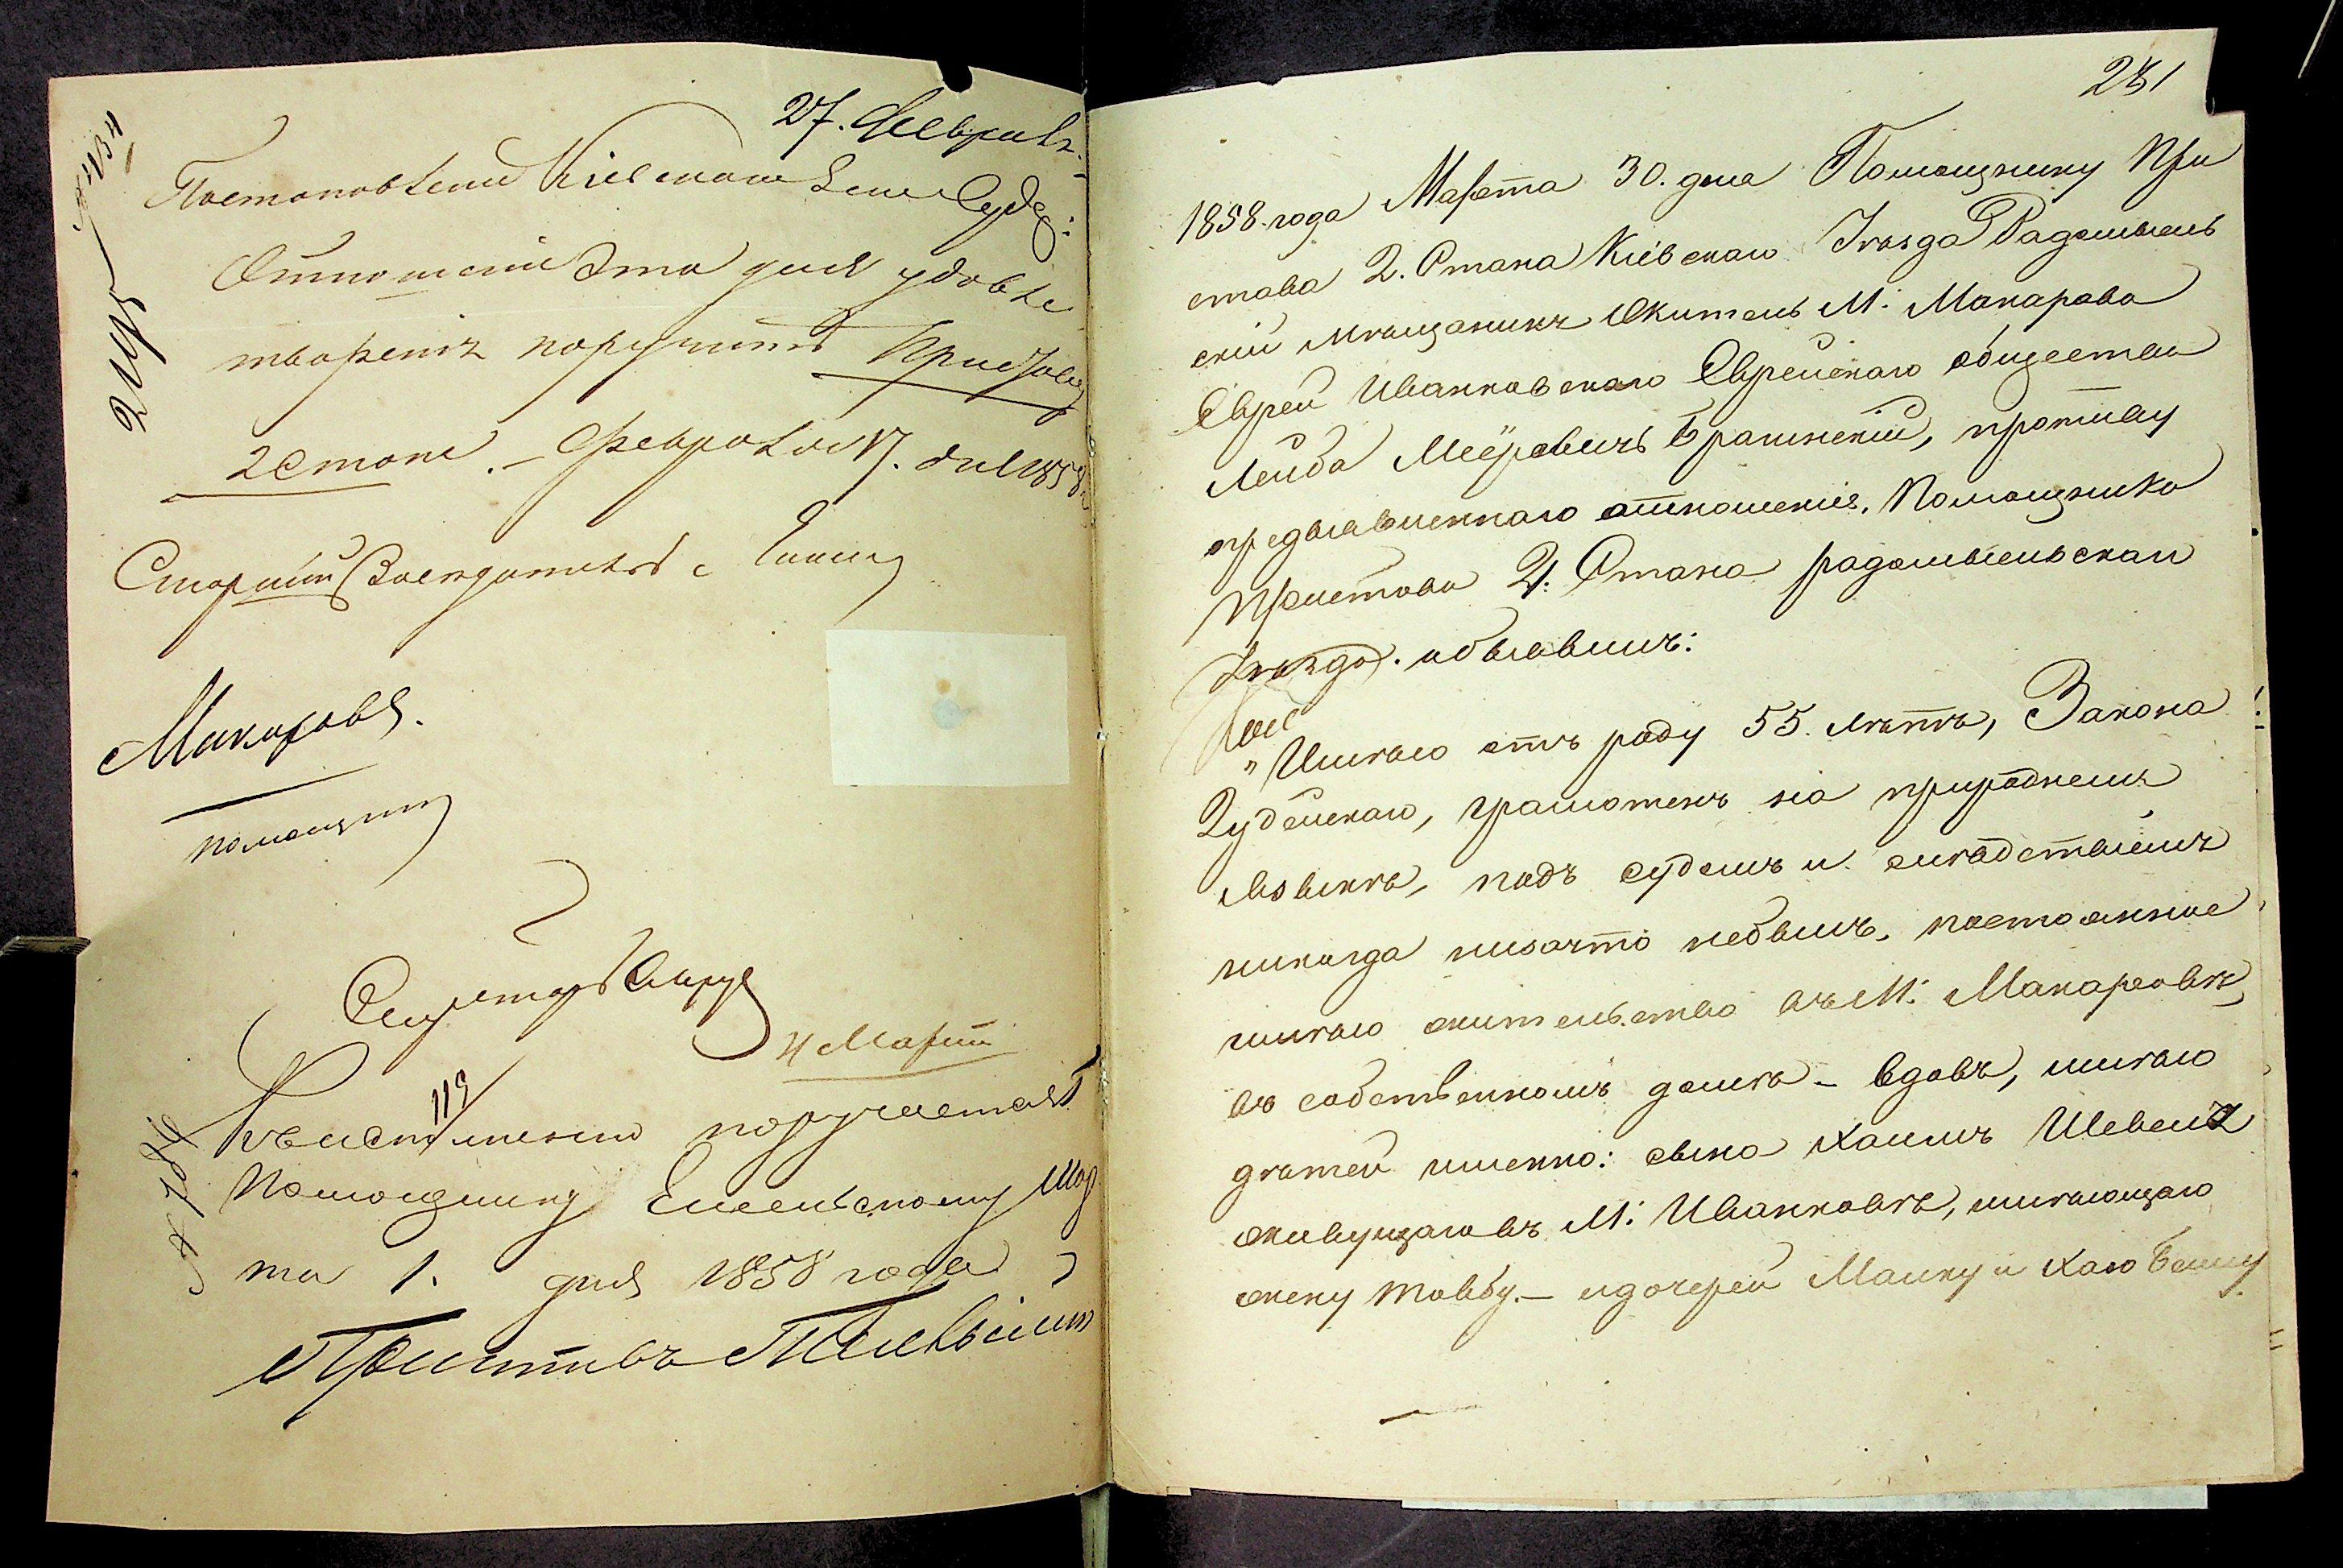 27. Февраля
Постановленіе Кіевскаго Зем Суда:
Отношеніе это для удовле
творенія поручить Приставу
2 Стана. – Февраля 17. дня 1858
Старшій Заседатель
Макаровъ.
помощнику
Секретарь
4 Марта
Къ исполненію поручается
Помощнику Мар
та 1. дня 1858 года
Приставъ
281
1858 года Марта 30. дня Помощнику При
става 2. Стана Кіевскаго Уезда Радомысль
скій мѣщанинъ житель М. Макарова
Еврей Иванковскаго Еврейскаго общества
Лейба Меёровичъ Брашнскій, противу
предъявленнаго отношенія, Помощника
Пристава 2. Стана радомысльскаго
Уѣзда. объявилъ:
„Имѣю отъ роду 55. лѣтъ, Закона
Іудейскаго, грамотенъ на природнемъ
языкѣ, подъ судомъ и слѣдствіемъ
никогда низачто небылъ, постоянное
имѣю жительство въ М. Макаровѣ,
въ собственномъ домѣ – вдовъ, имѣю
дѣтей именно: сына Хаимъ Шевеля
живущаго въ М. Иванковѣ, имѣющаго
жену Товбу. – и дочерей Малку и Хаю